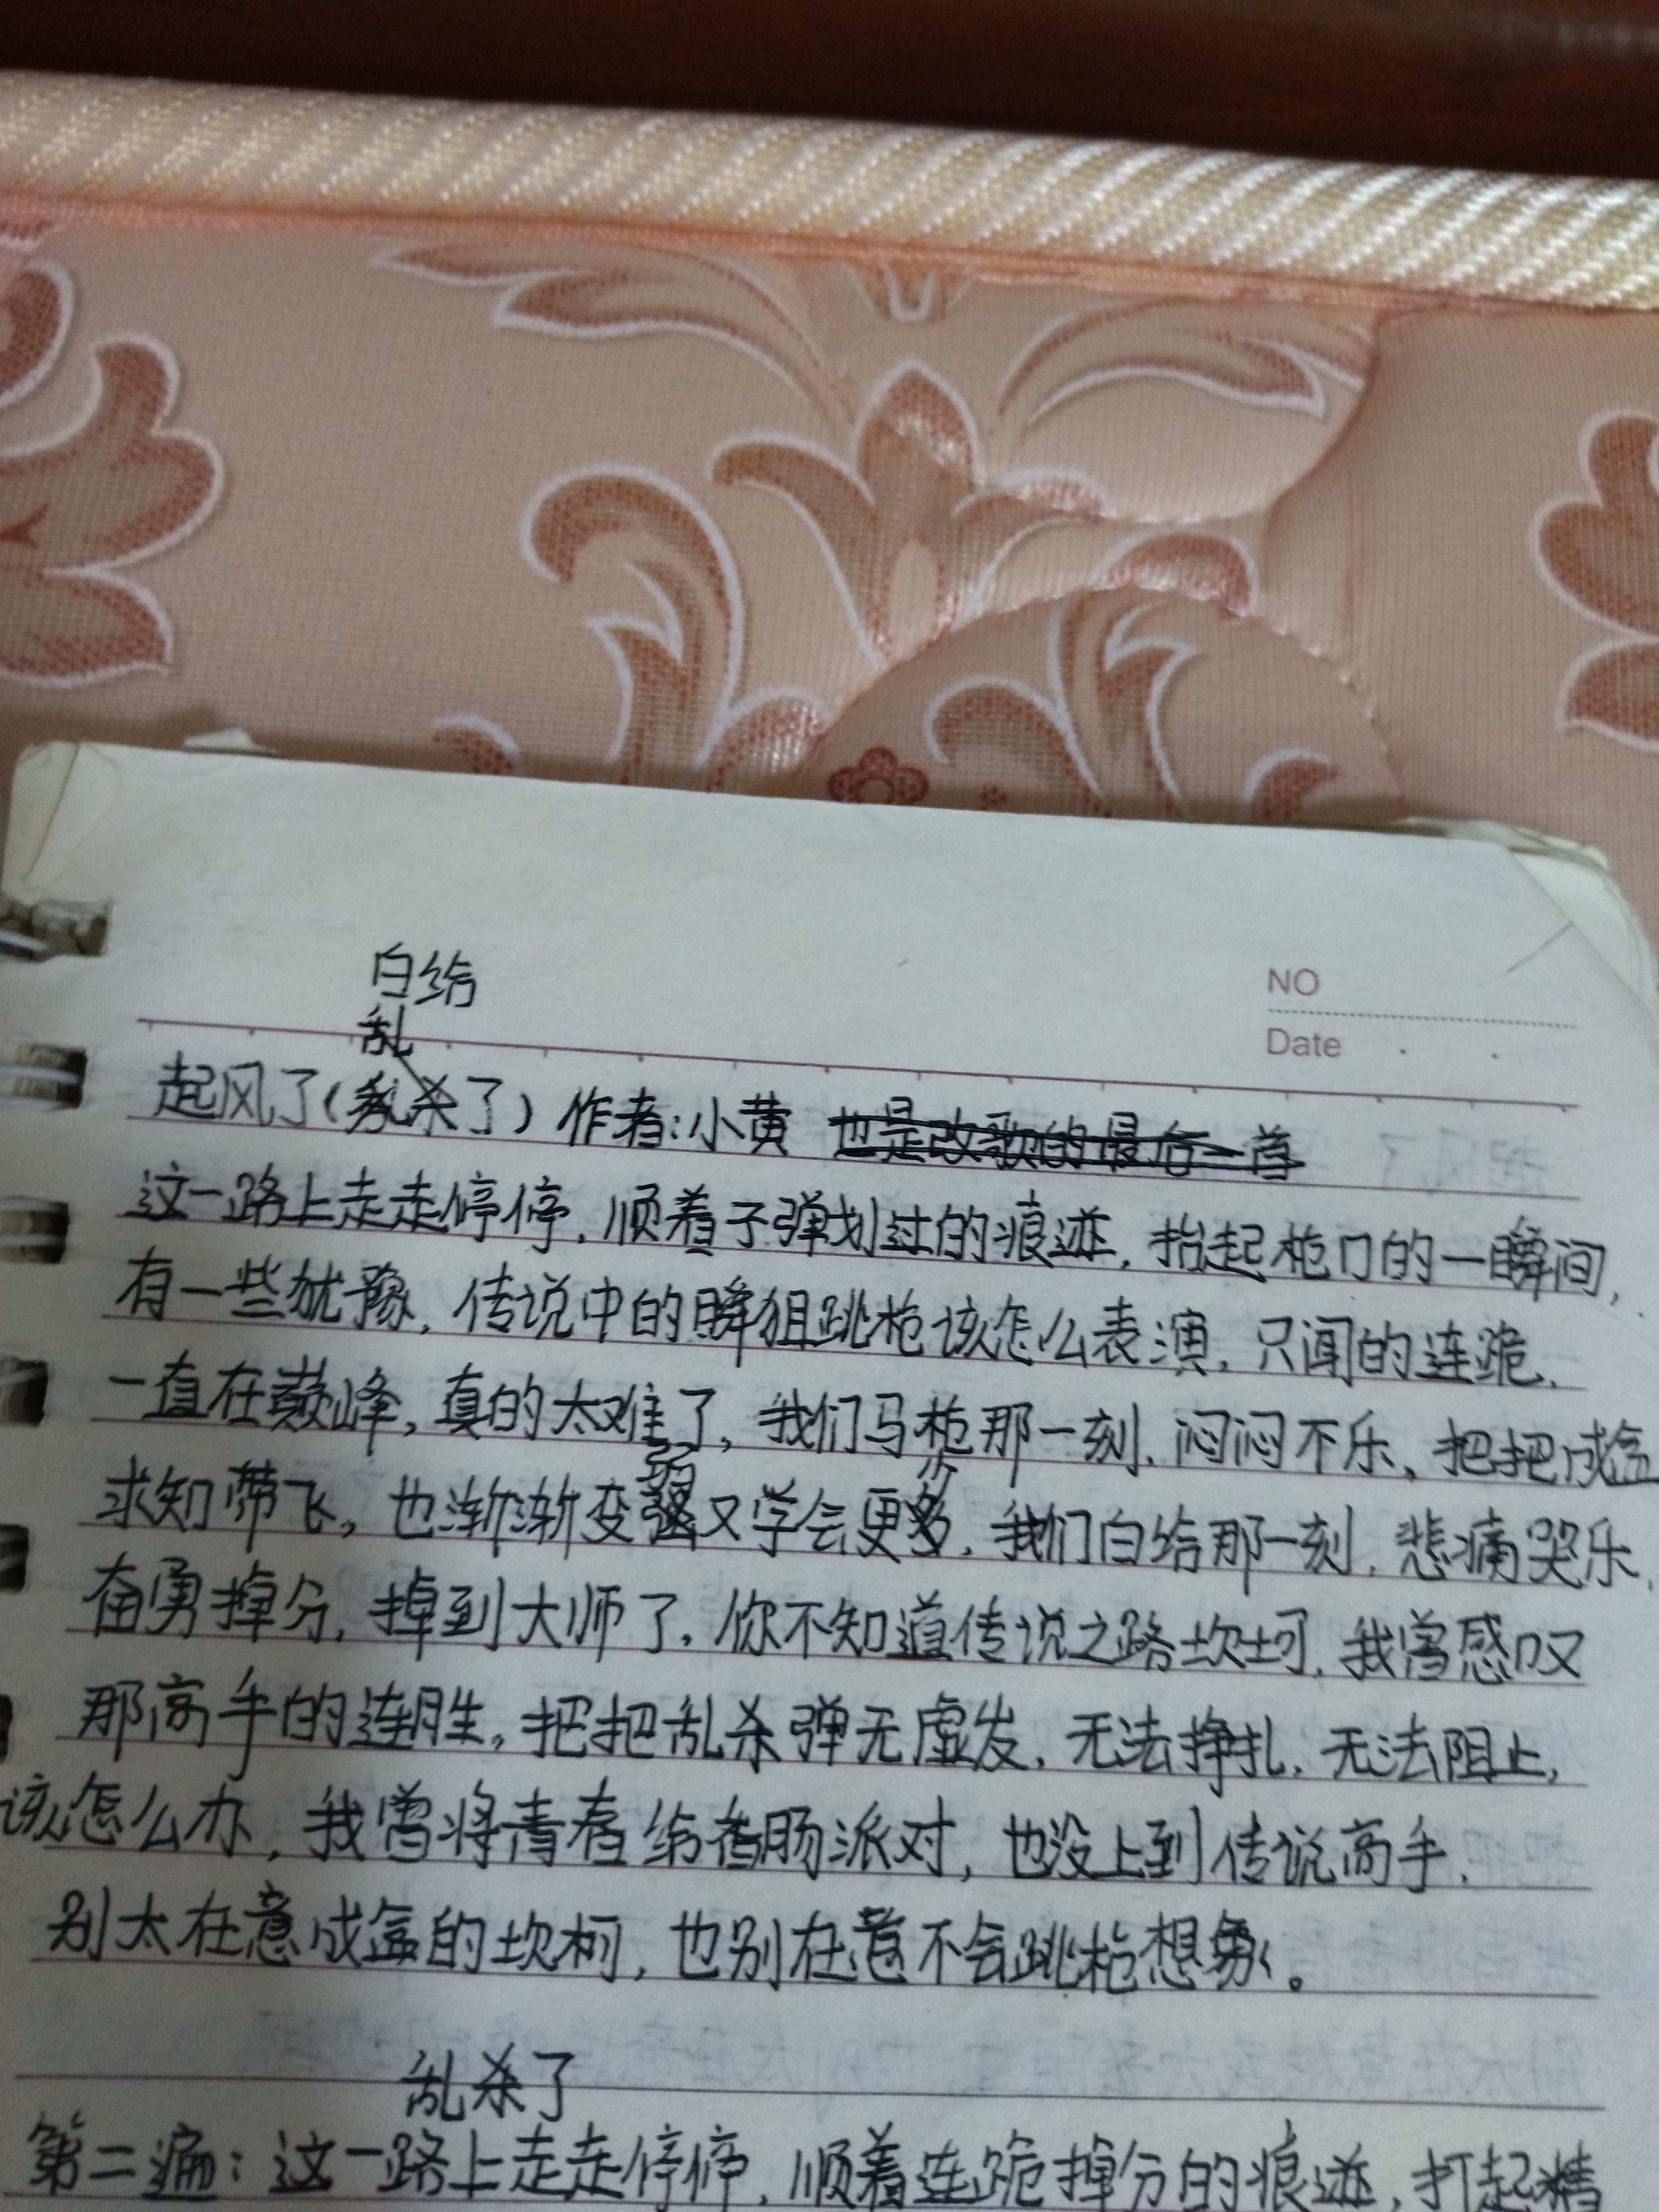 白给
乱
NO
Date
起风了(乱杀了) 作者:小黄 也是改歌的最后一首
这一路上走走停停,顺着子弹划过的痕迹,抬起枪口的一瞬间,
有一些犹豫,传说中的瞬狙跳枪该怎么表演,只闻的连跪,
一直在巅峰,真的太难了,我们马枪那一刻,闷闷不乐,把把成盒
弱 少
求知带飞,也渐渐变强又学会更多,我们白给那一刻,悲痛哭乐,
奋勇掉分,掉到大师了,你不知道传说之路坎坷,我曾感叹
那高手的连胜,把把乱杀弹无虚发,无法挣扎,无法阻止,
该怎么办,我曾将青春给香肠派对,也没上到传说高手.
别太在意成盒的坎柯,也别在意不会跳枪想象。
乱杀了
第二遍:这一路上走走停停,顺着连跪掉分的痕迹,打起精